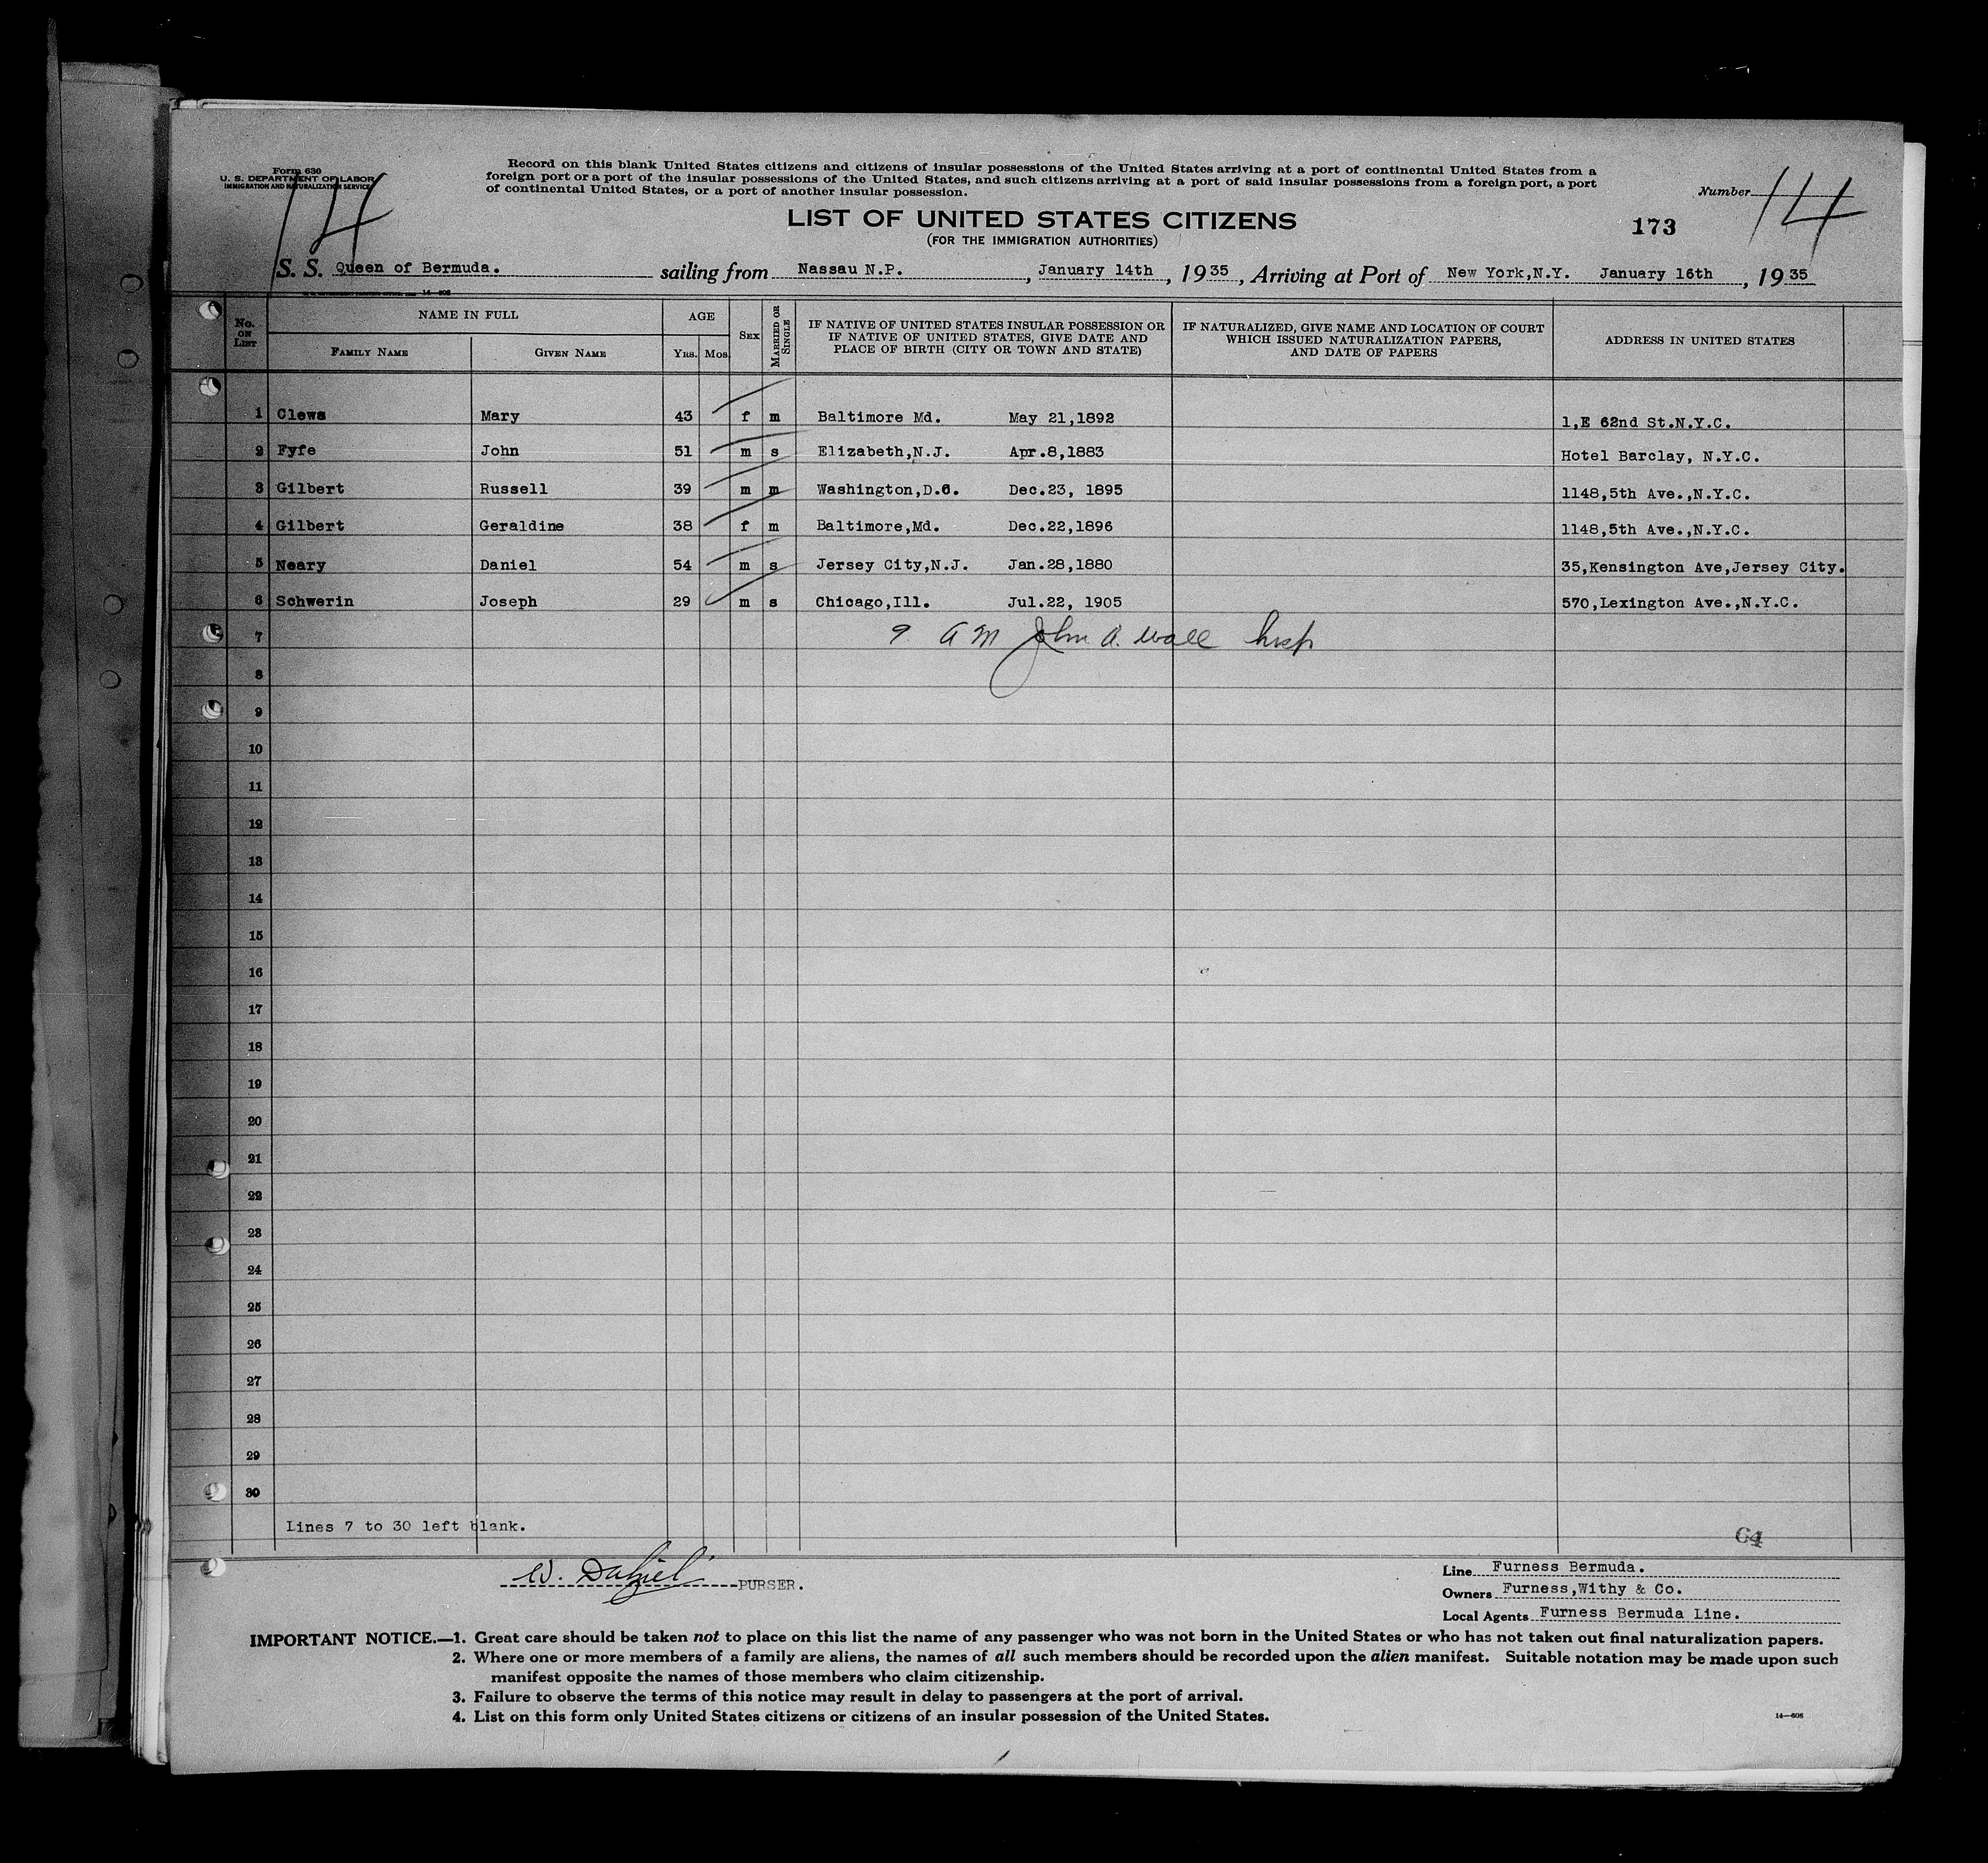 Form 630
U. S. DEPARTMENT OF LABOR
IMMIGRATION AND NATURALIZATION SERVICE
14
Record on this blank United States citizens and citizens of insular possessions of the United States arriving at a port of continental United States from a
foreign port or a port of the insular possessions of the United States, and such citizens arriving at a port of said insular possessions from a foreign port, a port
of continental United States, or a port of another insular possession.
Number 14
LIST OF UNITED STATES CITIZENS
(FOR THE IMMIGRATION AUTHORITIES)
173
S. S. Queen of Bermuda. sailing from Nassau N.P. , January 14th , 1935 , Arriving at Port of New York,N.Y. January 16th , 1935
No. ON LIST
NAME IN FULL
FAMILY NAME GIVEN NAME
AGE
YRS. MOS.
SEX
MARRIED OR SINGLE
IF NATIVE OF UNITED STATES INSULAR POSSESSION OR
IF NATIVE OF UNITED STATES, GIVE DATE AND
PLACE OF BIRTH (CITY OR TOWN AND STATE)
IF NATURALIZED, GIVE NAME AND LOCATION OF COURT
WHICH ISSUED NATURALIZATION PAPERS,
AND DATE OF PAPERS
ADDRESS IN UNITED STATES
1 Clews Mary 43 f m Baltimore Md. May 21,1892 1,E 62nd St.N.Y.C.
2 Fyfe John 51 m s Elizabeth,N.J. Apr.8,1883 Hotel Barclay, N.Y.C.
3 Gilbert Russell 39 m m Washington,D.C. Dec.23, 1895 1148,5th Ave.,N.Y.C.
4 Gilbert Geraldine 38 f m Baltimore,Md. Dec.22,1896 1148,5th Ave.,N.Y.C.
5 Neary Daniel 54 m s Jersey City,N.J. Jan.28,1880 35,Kensington Ave,Jersey City.
6 Schwerin Joseph 29 m s Chicago,Ill. Jul.22, 1905 570,Lexington Ave.,N.Y.C.
7 9 AM John A. Wall Insp
8
9
10
11
12
13
14
15
16
17
18
19
20
21
22
23
24
25
26
27
28
29
30
Lines 7 to 30 left blank.
64
W. Dalziel PURSER.
Line Furness Bermuda.
Owners Furness,Withy & Co.
Local Agents Furness Bermuda Line.
IMPORTANT NOTICE.—1. Great care should be taken not to place on this list the name of any passenger who was not born in the United States or who has not taken out final naturalization papers.
2. Where one or more members of a family are aliens, the names of all such members should be recorded upon the alien manifest. Suitable notation may be made upon such
manifest opposite the names of those members who claim citizenship.
3. Failure to observe the terms of this notice may result in delay to passengers at the port of arrival.
4. List on this form only United States citizens or citizens of an insular possession of the United States.
14—606